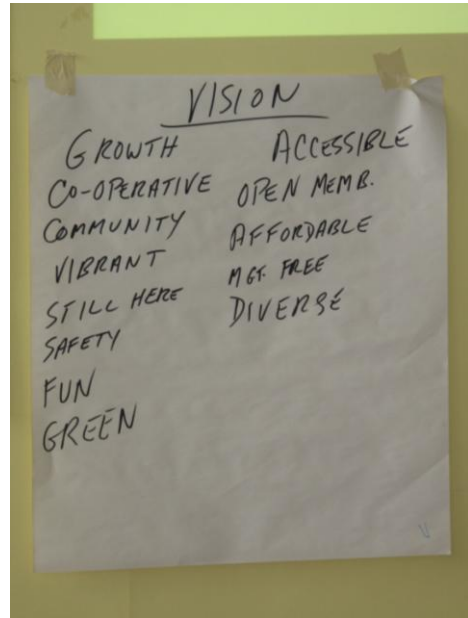 VISION
GROWTH
CO-OPERATIVE
COMMUNITY
VIBRANT
STILL HERE
SAFETY
FUN
GREEN
ACCESSIBLE
OPEN MEMB.
AFFORDABLE
MGT. FREE
DIVERSE